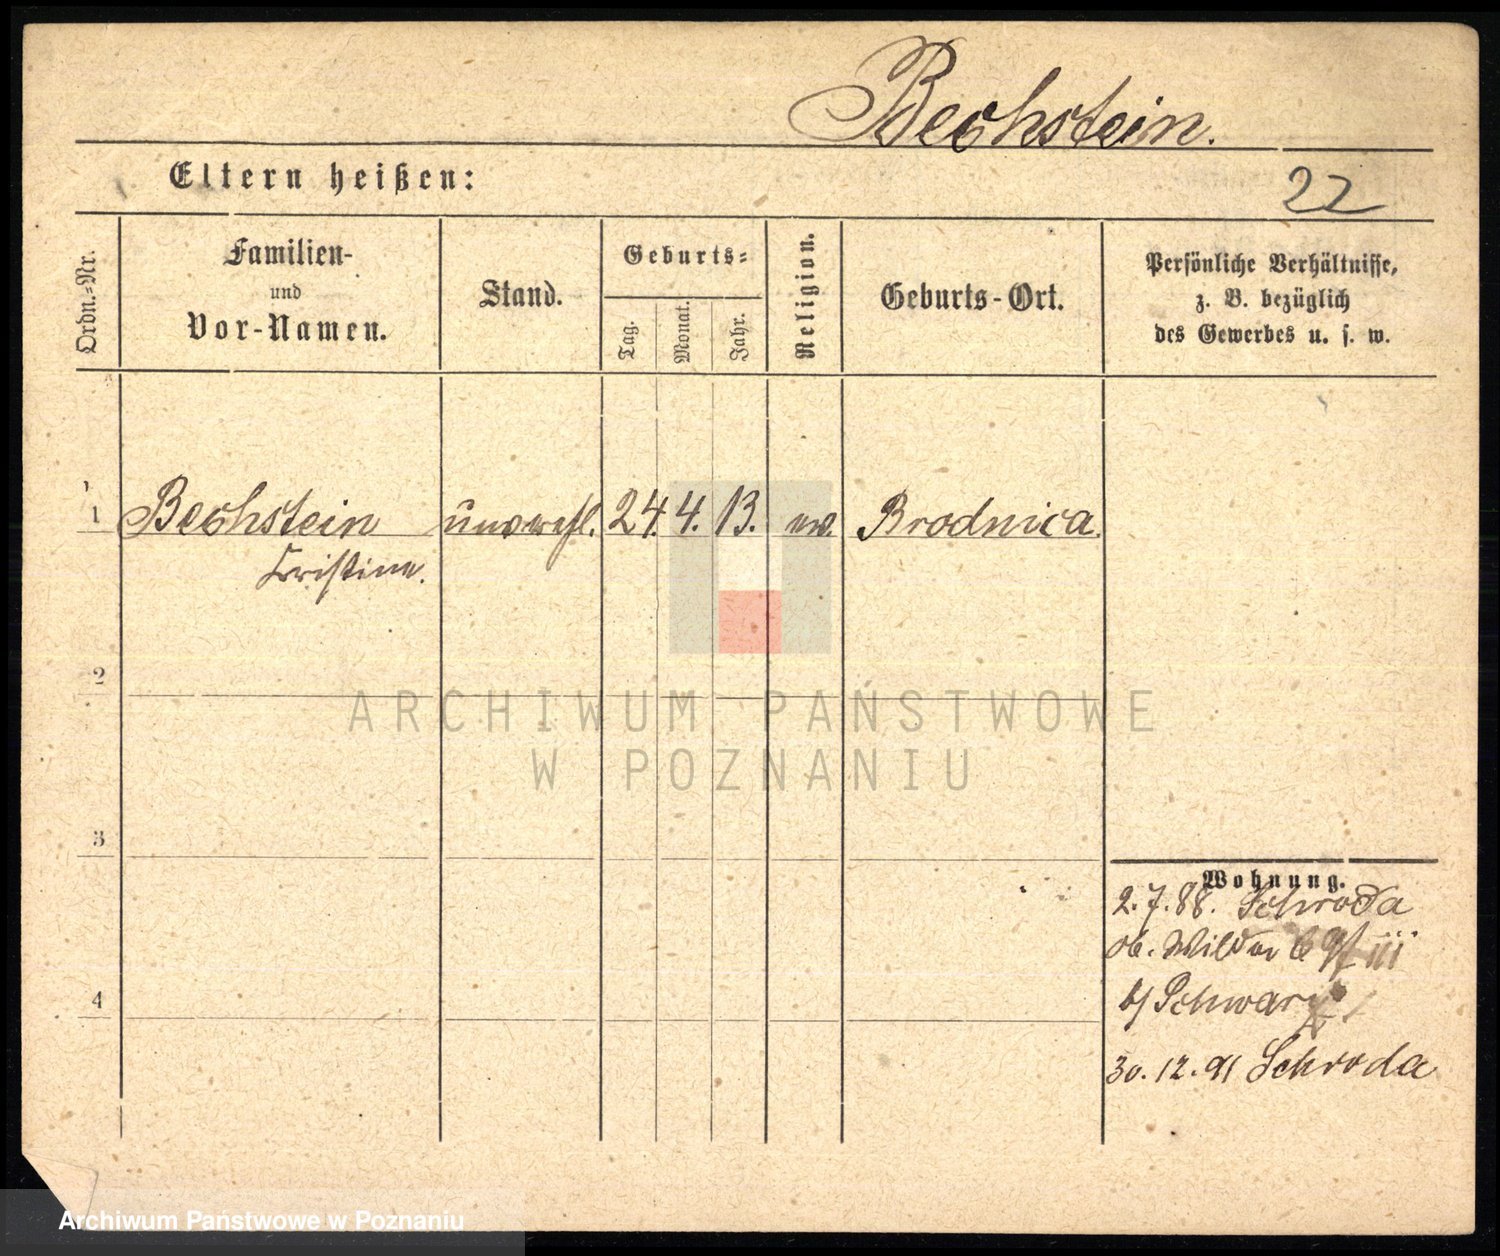 Bechstein.
Eltern heißen:
22
Ordn.-Nr.
Familien-
und
Vor-Namen.
Stand.
Geburts-
Tag.
Monat.
Jahr.
Religion.
Geburts-Ort.
Persönliche Verhältnisse,
z. B. bezüglich
des Gewerbes u. s. w.
1 Bechstein unverehl. 24. 4. 13. ev. Brodnica.
Cristine.
2
3
4
Wohnung.
2.7.88. Schroda
ob. Wilda
b/ Schwarz
30.12.91 Schroda
ARCHIWUM PAŃSTWOWE
W POZNANIU
Archiwum Państwowe w Poznaniu